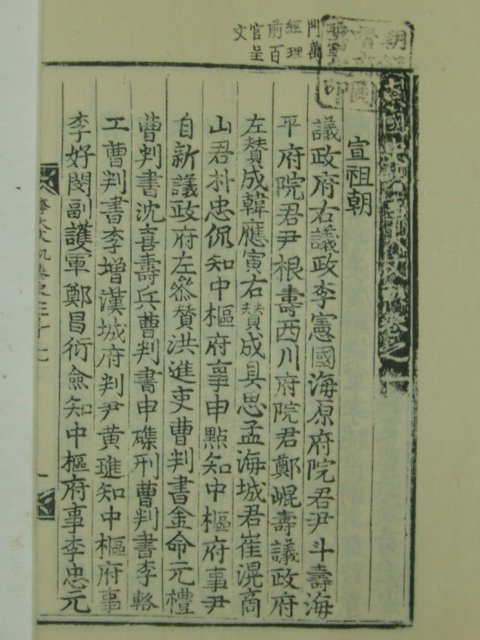 宣祖朝
議政府右議政李憲國海原府院君尹斗壽海
平府院君尹根壽西川府院君鄭崐壽議政府
左贊成韓應寅右贊成具思孟海城君崔滉商
山君朴忠侃知中樞府事申點知中樞府事尹
自新議政府左參贊洪進吏曹判書金命元禮
曹判書沈喜壽兵曹判書申磼刑曹判書李輅
工曹判書李增漢城府判尹黃璡知中樞府事
李好閔副護軍鄭昌衍僉知中樞府事李忠元
門萬
經理
前百
官呈
文